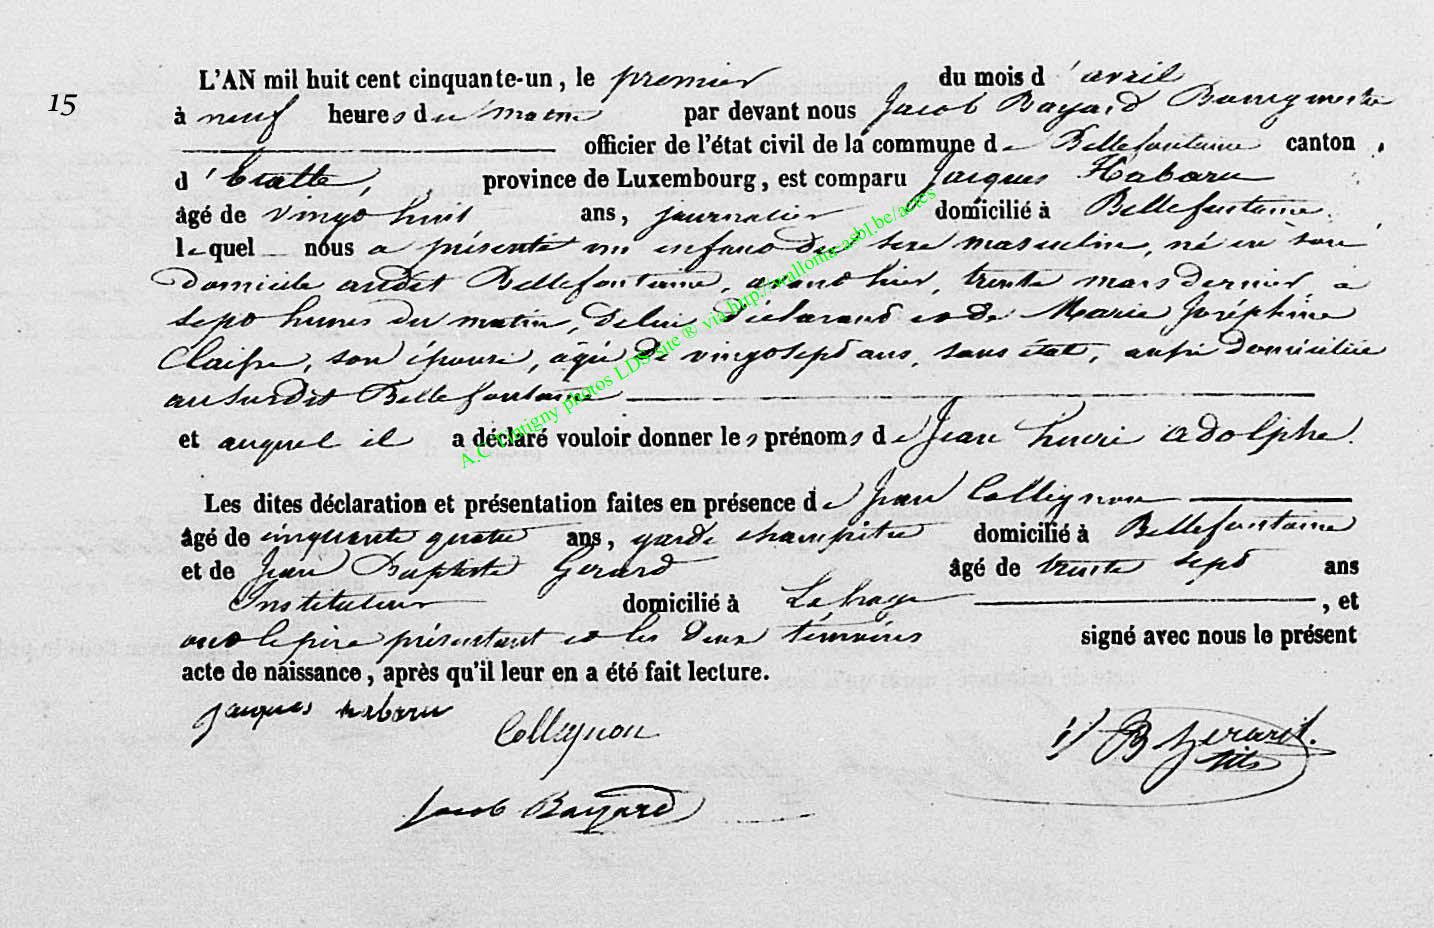 15
L'AN mil huit cent cinquante-un, le premier du mois d'avril
à neuf heures du matin par devant nous Jacob Bayard Bourgmestre
officier de l'état civil de la commune de Bellefontaine canton
d'Etalle, province de Luxembourg, est comparu Jacques Habaru
âgé de vingt huit ans, journalier domicilié à Bellefontaine.
lequel nous a présenté un enfant du sexe masculin, né en son
domicile audit Bellefontaine, avant hier, trente mars dernier, à
sept heures du matin, de lui déclarant et de Marie Joséphine
son épouse, âgée de vingt sept ans, sans état, aussi domiciliée
au susdit Bellefontaine
et auquel il a déclaré vouloir donner les prénoms de Jean henri adolphe.
Les dites déclaration et présentation faites en présence de Jean Collignon
âgé de cinquante quatre ans, garde champêtre domicilié à Bellefontaine
et de Jean Baptiste Gerard âgé de trente sept ans
Instituteur domicilié à Lahage, et
ont le père présentant et les deux témoins signé avec nous le présent
acte de naissance, après qu'il leur en a été fait lecture.
jacques habaru
Collignon
J B Gerard.
Jacob Bayard
photos LDS site ® via http://wallonia-asbl.be/actes